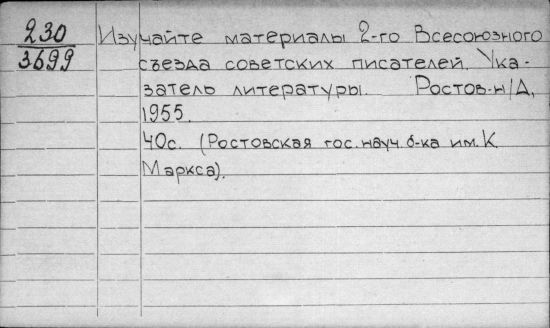 230
3699
Изучайте материалы 2-го Всесоюзного
съезда советских писателей. Ука-
затель литературы. Ростов-н/Д,
1955.
40с. (Ростовская гос. науч. б-ка им. К.
Маркса).